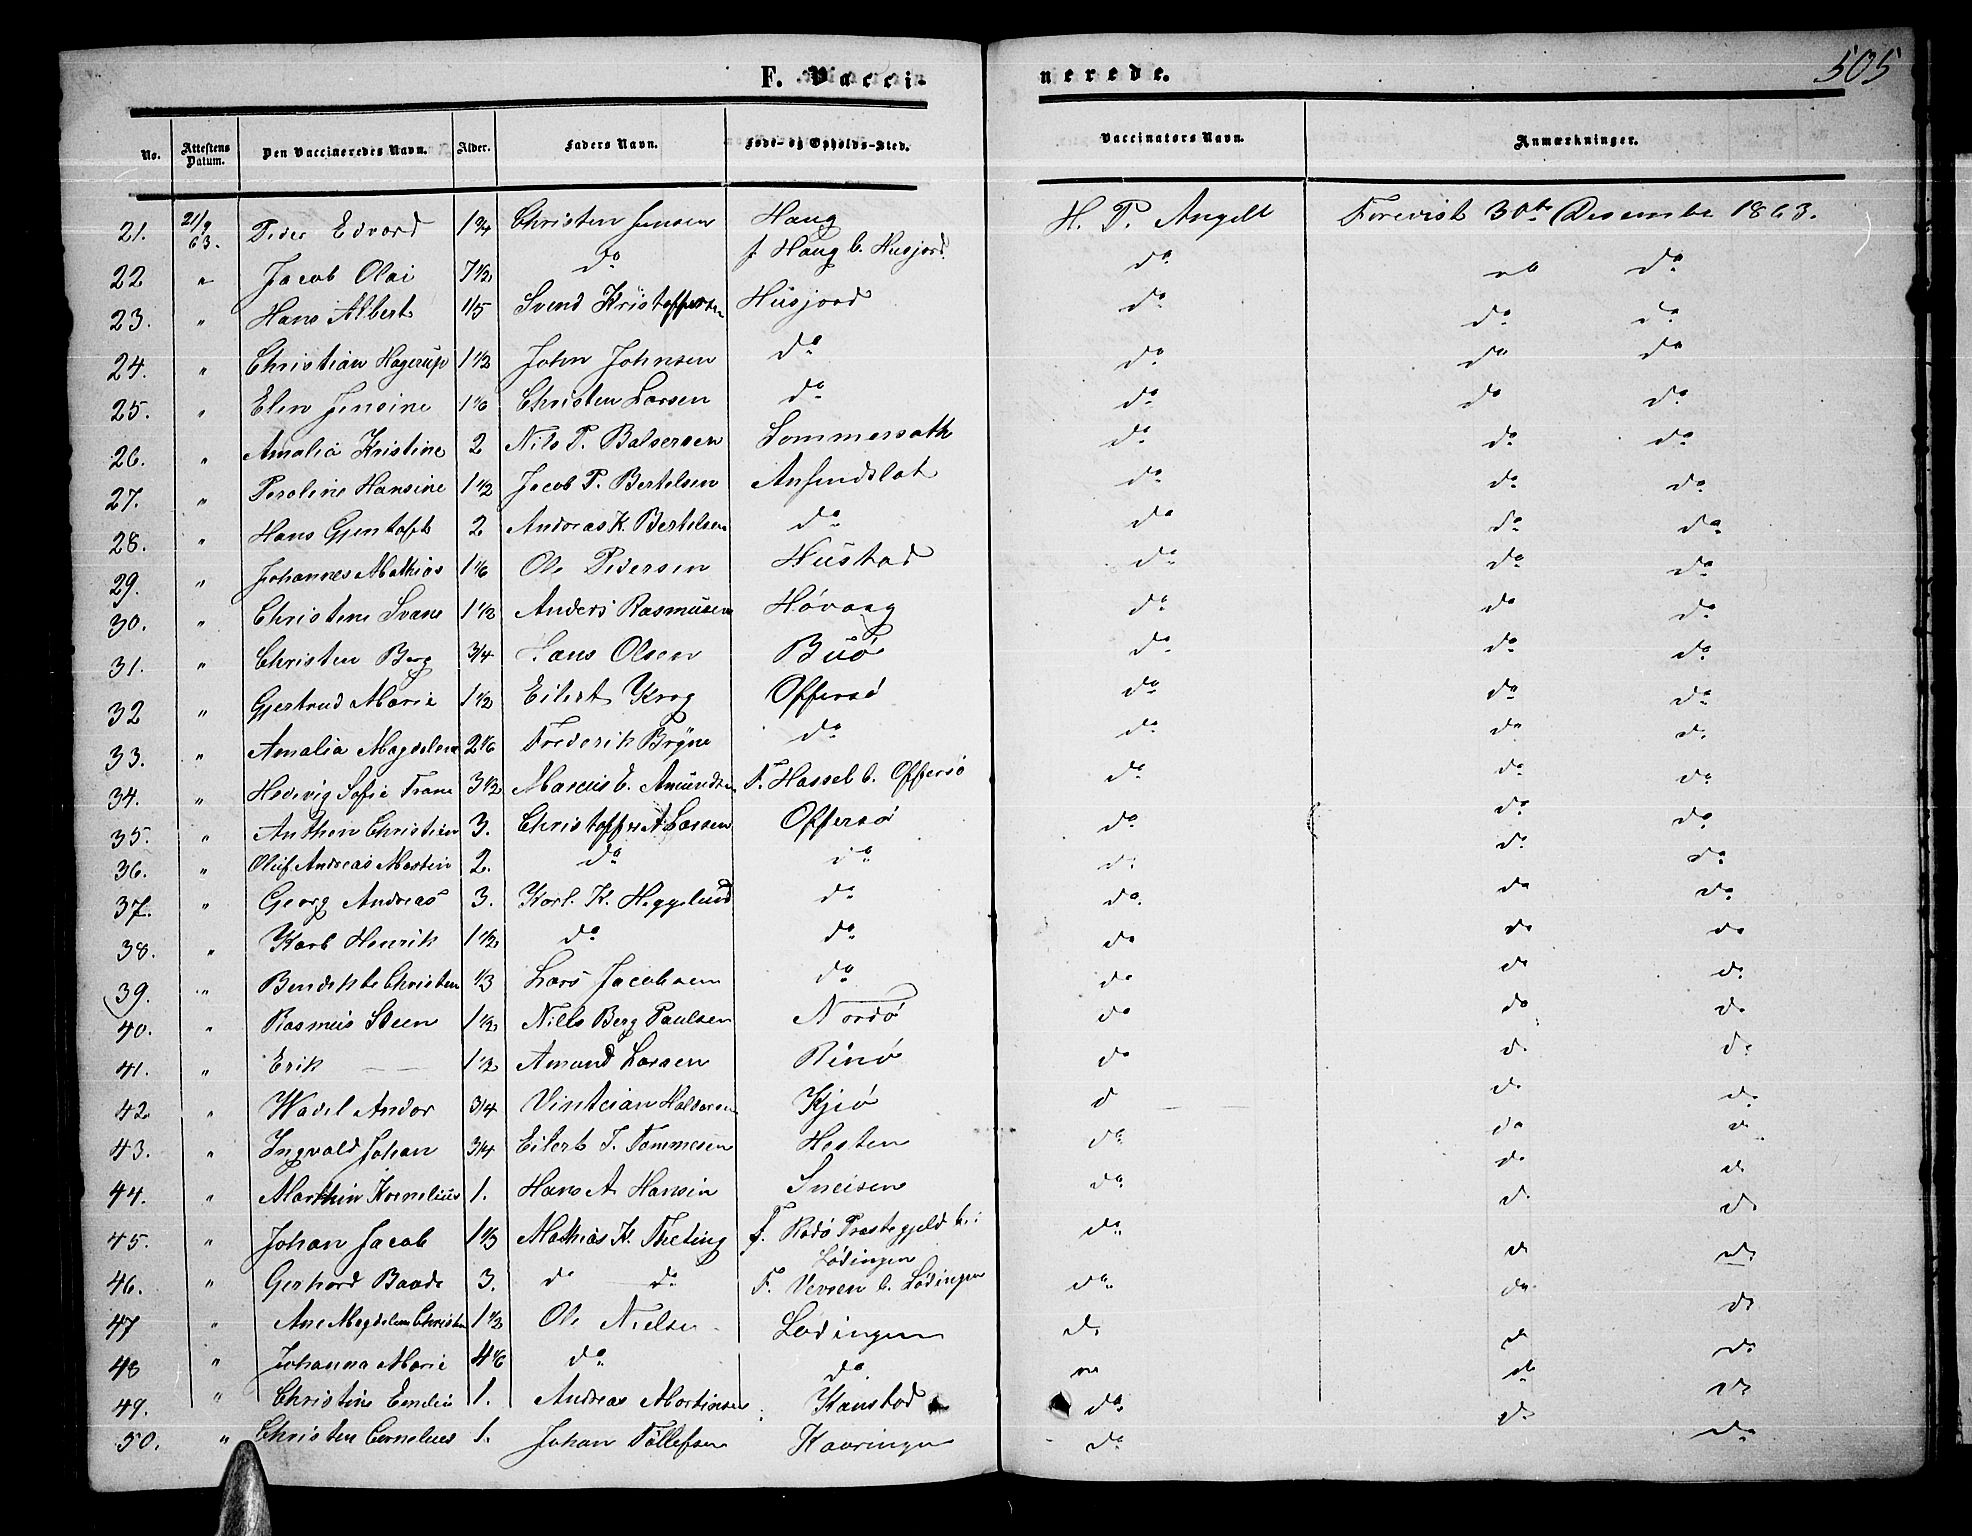 505
F. Vaccinerede.
No. Attestens Datum. Den Vaccineredes Navn. Alder. Faders Navn. Føde- og Opholds-Sted. Vaccinators Navn. Anmærkninger.
21. 21/9 63. Peder Edvard 1 3/4 Christen Jensen Haug H. P. Angell Forevist 30te Desember 1863.
22 " Jacob Olai 7 1/2 do f Haug b. Husjord do do do
23. " Hans Albert 1/5 Svend Kristoffersen Husjord do do do
24. " Christian Hagerup 1 1/2 John Johnsen do do do do
25. " Elen Jensine 1 1/6 Christen Larsen do do do do
26. " Amalia Kristine 2 Nils P. Balsersen Sommersæth do do do
27. " Peroline Hansine 1 1/2 Jacob P. Bertelsen do do do
28. " Hans Gjentoft 2 Andreas K. Bertelsen do do do do
29. " Johannes Mathias 1 1/6 Ole Pedersen Hustad do do do
30. " Christine Svane 1 1/2 Anders Rasmusen Høvaag do do do
31. " Christen Berg 3/4 Hans Olsen Buø do do do
32 " Gjertrud Marie 1 1/2 Eilert Krog Offersø do do do
33. " Amalia Magdelena 2 1/6 Frederik Brÿne do do do do
34. " Hedevig Sofie Trane 3 1/2 Marcus E. Amundsen F. Hassel b. Offersø do do do
35. " Anthon Christian 3. Christoffer A Larsen Offersø do do do
36. " Oluf Andreas Martin 2. do do do do do
37. " Georg Andreas 3. Karl. K. Heggelund do do do do
38. " Karl Henrik 1 1/2 do do do do do
39. " Bendikte Christen 1/3 Lars Jacobsen do do do do
40. " Rasmus Steen 1 1/2 Nills Berg Paulsen Nordø do do do
41. " Erik 1 1/2 Amund Larsen Rinø do do do
42 " Wadel Andor 3/4 Kjeø d do do
43. " Ingvald Johan 3/4 Eilert T. Tommesen Hesten do do do
44. " Marthin Kornelius 1. Hans A Hansen Sneisen do do do
45. " Johan Jacob 1 1/3 Mathias K. Theting f. Rødø Præstegjeld b.: Lødingen do d do
46. " Gerhard Baade 3. do do F. Veveen b. Lødingen do do do
47 " Ane Magdelena Christen 1 1/2 Ole Nielse Lødingen do do do
48 " Johanna Marie 4 1/6 do do do do
49. " Christine Emilie 1. Andreas Martinsen Kanstad do do do
50. " Christen Cornelius 1. Johan Tollefsen Kaaringen do do